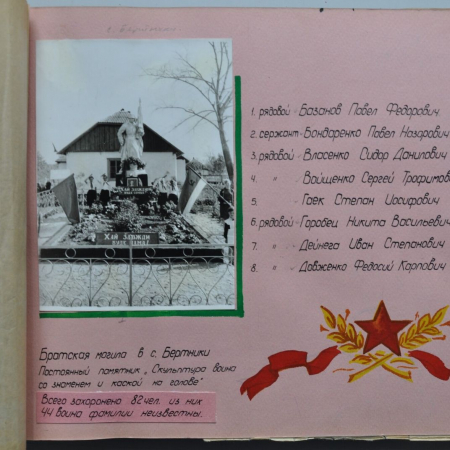 с. Бертники
1. рядовой - Базанов Павел Федорович
2. сержант - Бондаренко Павел Назарович
3. рядовой - Власенко Сидор Данилович
4. " - Войщенко Сергей Трофимов
5. " - Гаек Степан Иосифович
6. рядовой - Гаровец Никита Васильевич
7. " - Дейнега Иван Степанович
8. " - Довженко Федосий Карпович
ХАЙ ЗАВЖДИ
БУДЕ
Братская могила в с. Бертники
Постоянный памятник „Скульптура воина
со знаменем и каской на голове"
Всего захоронено 82 чел. из них
44 воина фамилии неизвестны.